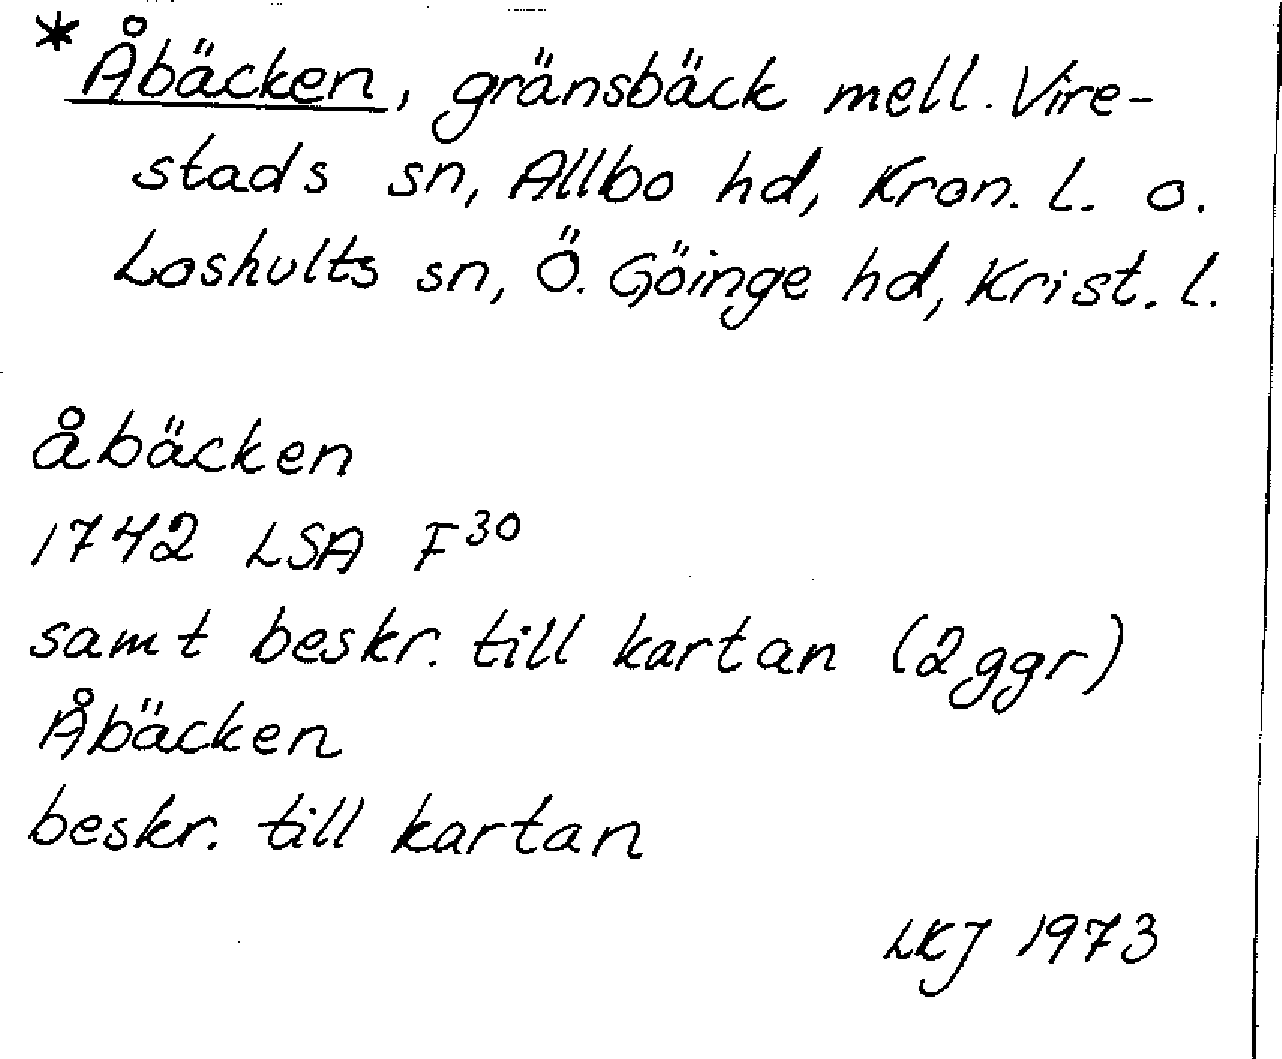 *Åbäcken, gränsbäck mell. Vire-
stads sn, Allbo hd, Kron. l. o.
Loshults sn, Ö. Göinge hd, Krist. l.
åbäcken
1742 LSA F30
samt beskr. till kartan (2ggr)
Åbäcken
beskr. till kartan
LKJ 1973